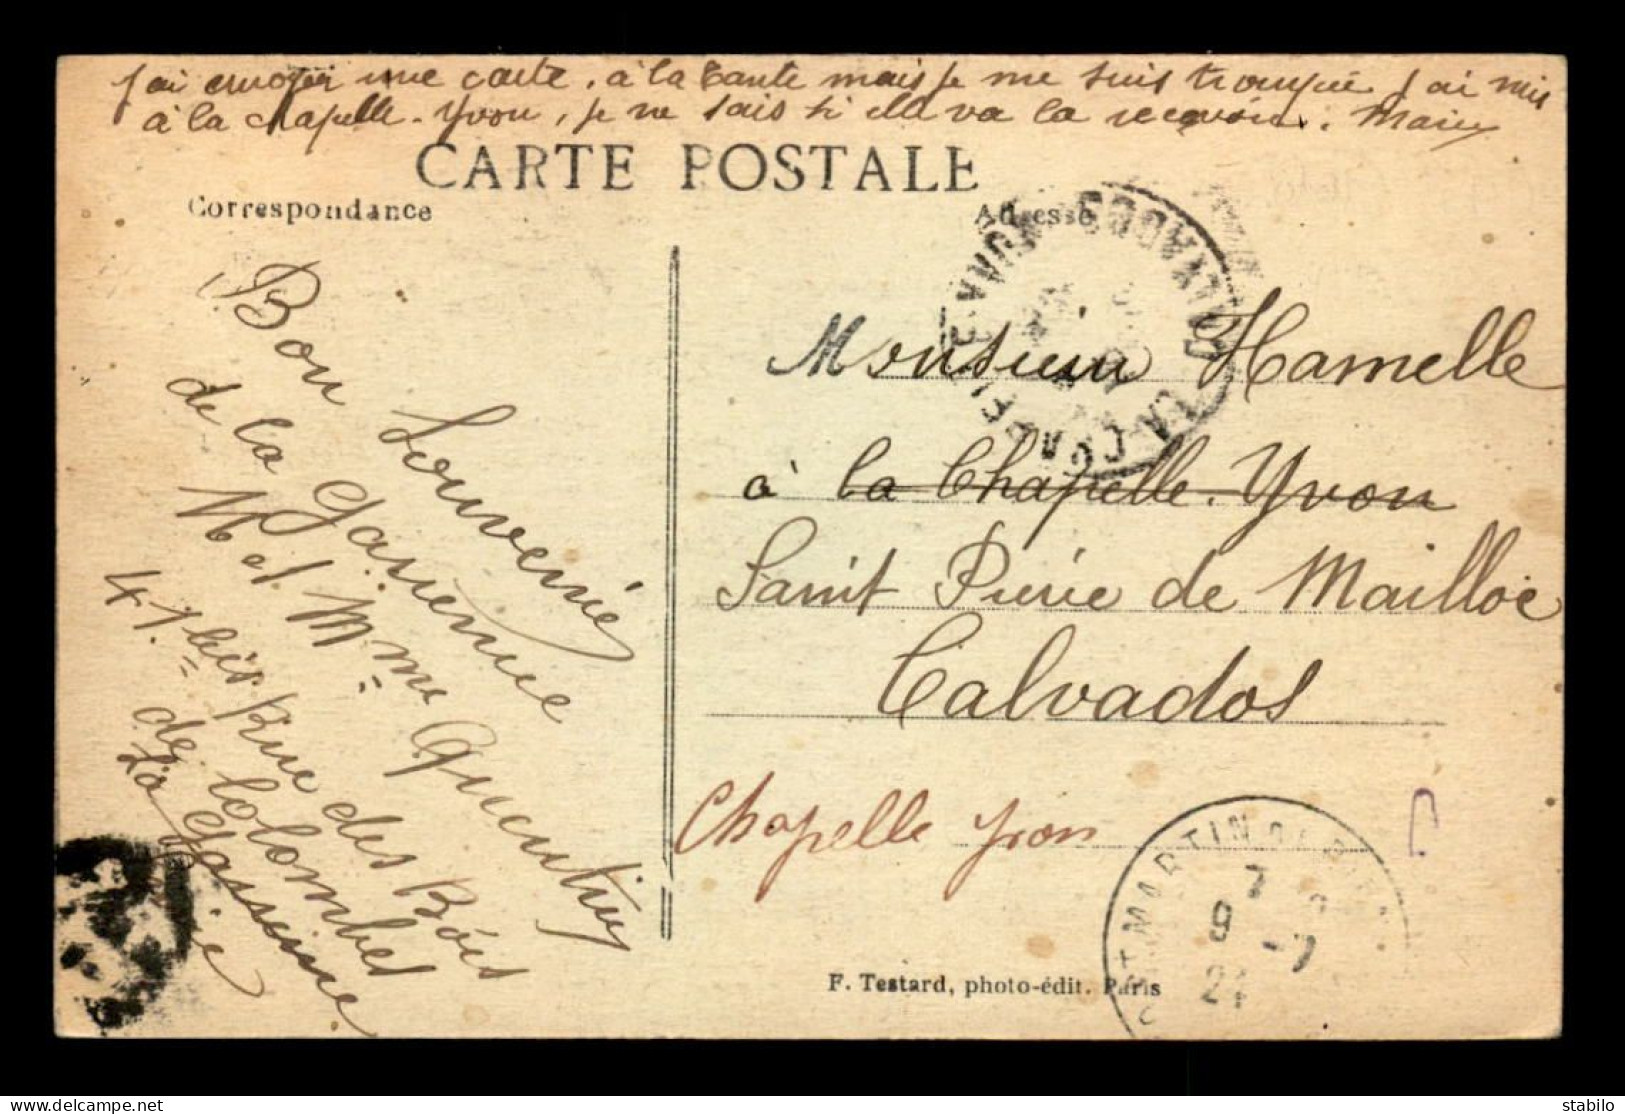 J'ai envoyer une carte, à la tante mais je me suis trompée J'ai mis
à la chapelle-Yvon, je ne sais si elle va la recevoir.
CARTE POSTALE
Correspondance
Adresse
Bon Souvenir
de la Garenne
M et Mme Quentin
47 bis Rue des Bois
de Colombes
La Garenne
Monsieur Hamelle
à la Chapelle-Yvon
Saint Pierre de Mailloc
Calvados
Chapelle yvon
F. Testard, photo-édit. Paris
CALVADOS
ST MARTIN
7
9 -7
stabilo